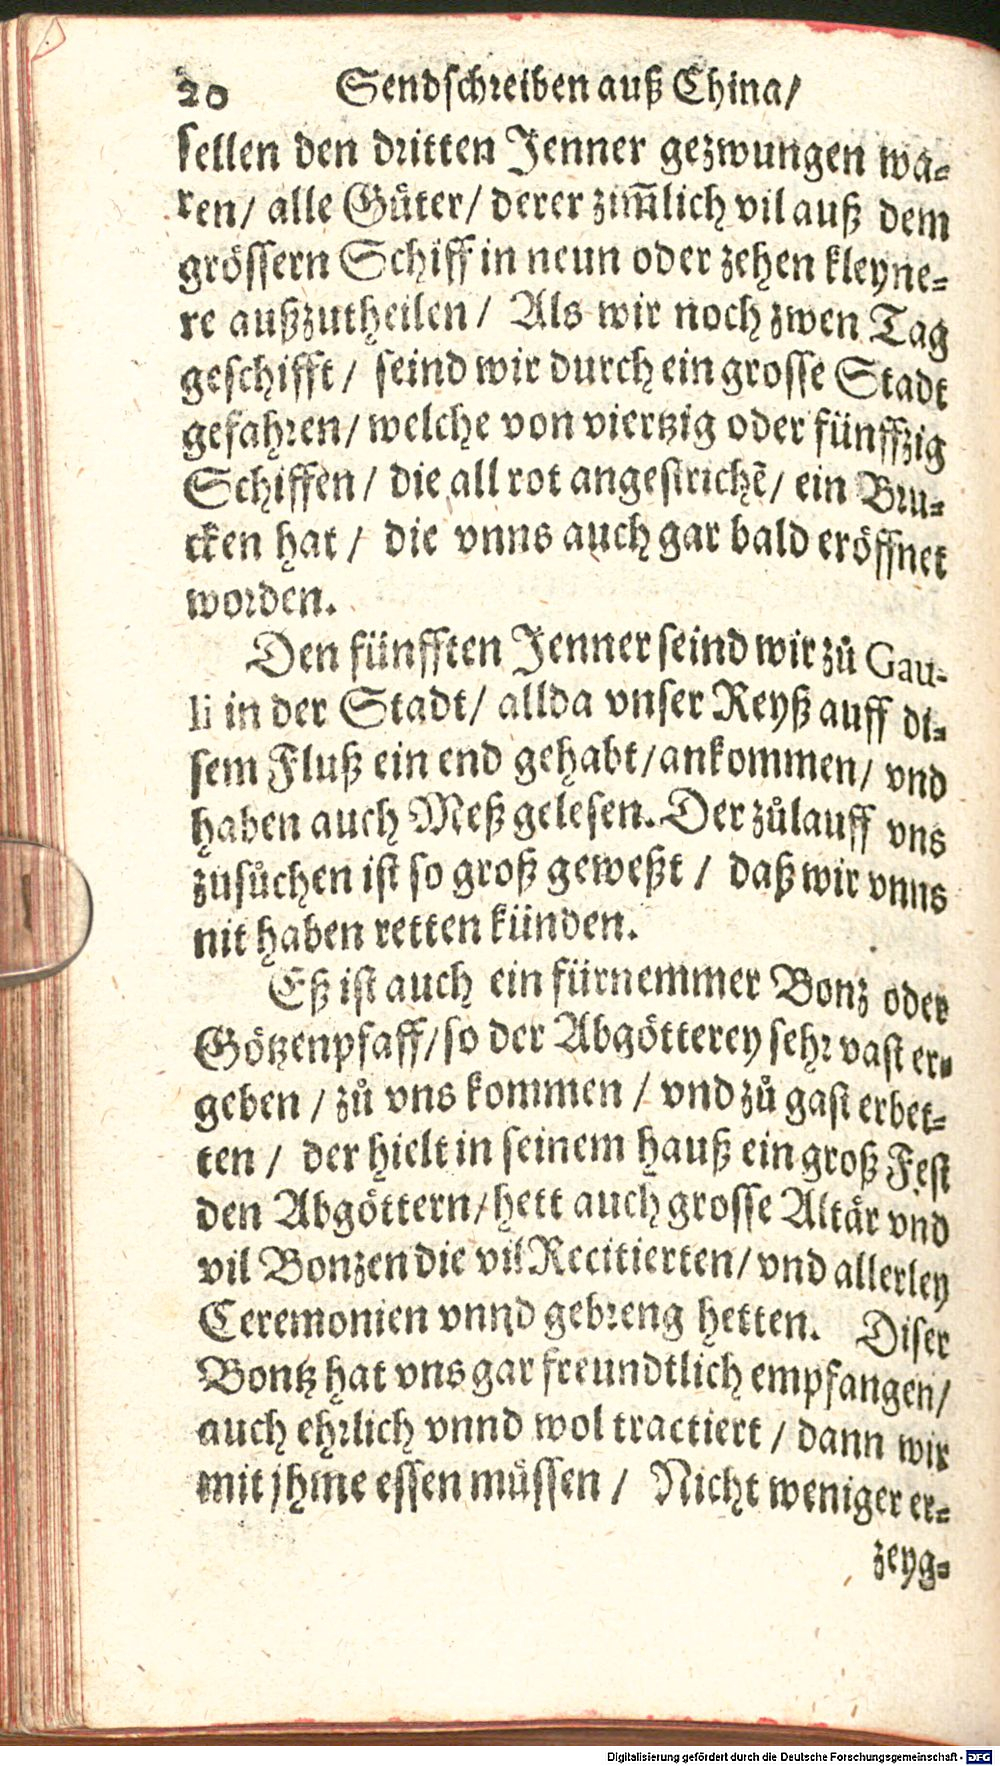 20 Sendschreiben auß China/
sellen den dritten Jenner gezwungen wa-
ren/ alle Gůter/ derer zim̃lich vil auß dem
grössern Schiff in neun oder zehen kleyne-
re außzutheilen/ Als wir noch zwen Tag
geschifft/ seind wir durch ein grosse Stadt
gefahren/ welche von viertzig oder fünffzig
Schiffen/ die all rot angestrichẽ/ ein Bru-
cken hat/ die vnns auch gar bald eröffnet
worden.
Den fünfften Jenner seind wir zů Gau-
li in der Stadt/ allda vnser Reyß auff di-
sem Fluß ein end gehabt/ankommen/ vnd
haben auch Meß gelesen. Der zůlauff vns
zusůchen ist so groß geweßt/ daß wir vnns
nit haben retten künden.
Eß ist auch ein fürnemmer Bonz oder
Götzenpfaff/so der Abgötterey sehr vast er-
geben/ zů vns kommen/ vnd zů gast erbet-
ten/ der hielt in seinem hauß ein groß Fest
den Abgöttern/hett auch grosse Altär vnd
vil Bonzen die vil Recitierten/ vnd allerley
Ceremonien vnnd gebreng hetten. Diser
Bontz hat vns gar freundtlich empfangen/
auch ehrlich vnnd wol tractiert/ dann wir
mit jhme essen můssen/ Nicht weniger er-
zeyg-
Digitalisierung gefördert durch die Deutsche Forschungsgemeinschaft - DFG